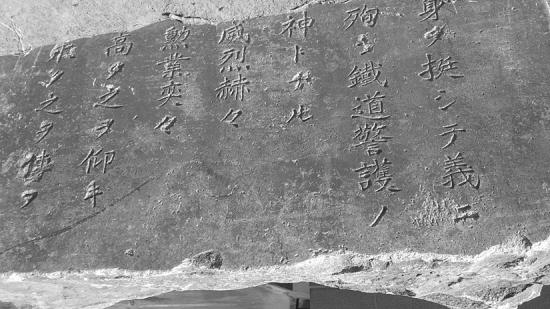 身ヲ挺シテ義ニ
殉シ鐵道警護ノ
神トナル
威烈赫々
勳業奕々
高ク之ヲ仰キ
ク之ヲ傳